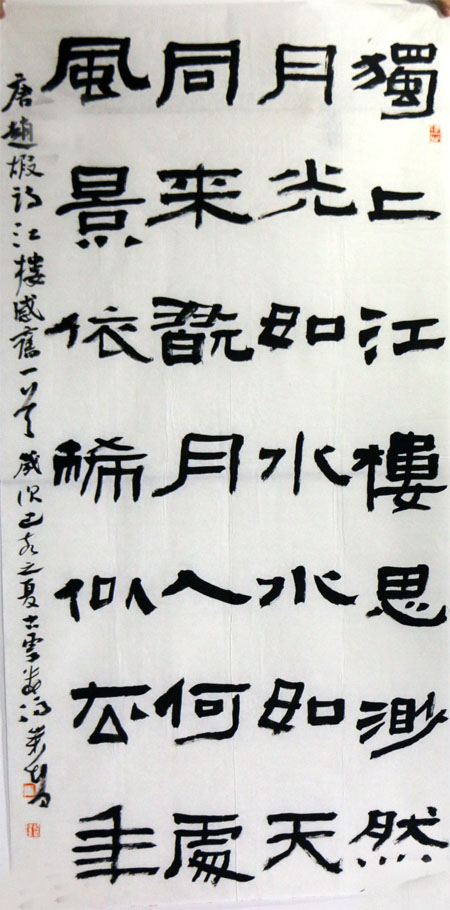 獨上江樓思渺然
月光如水水如天
同來翫月人何處
風景依稀似去年
唐趙嘏詩江樓感舊一首 歲次己亥之夏